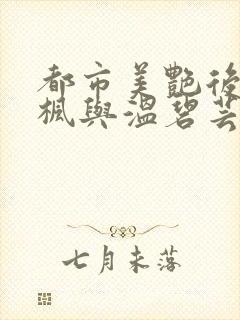 都市美艷後
楓與溫碧芸
七月未落